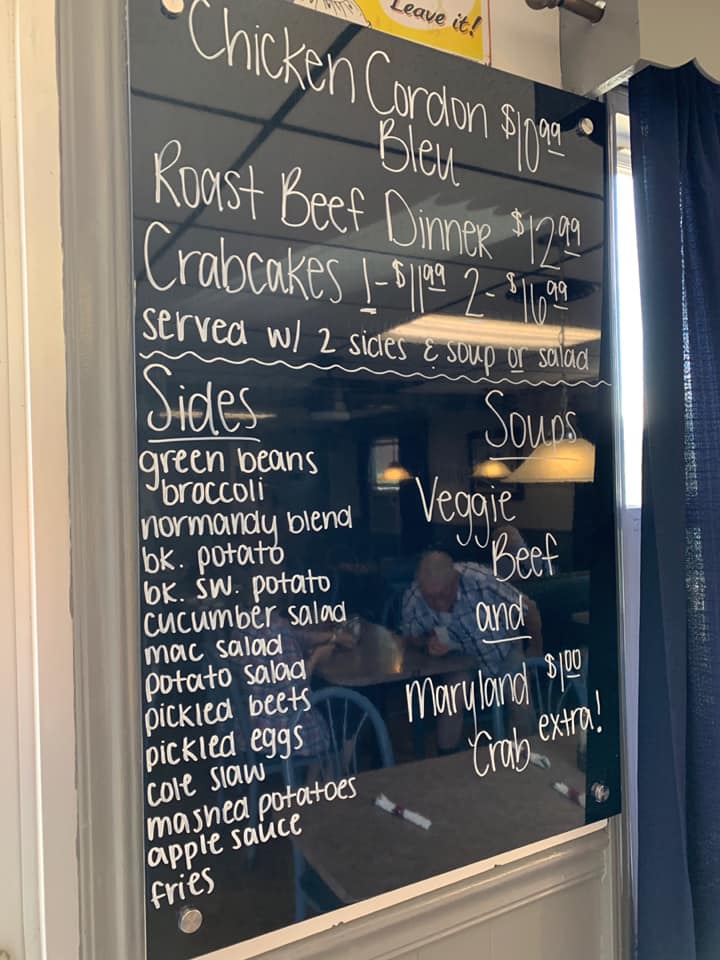 Leave it!
Chicken Cordon $10.99
Bleu
Roast Beef Dinner $12.99
Crabcakes 1-$11.99 2-$16.99
served w/ 2 sides & soup or salad
Sides
green beans
broccoli
normandy blend
bk. potato
bk. sw. potato
cucumber salad
mac salad
potato salad
pickled beets
pickled eggs
cole slaw
mashed potatoes
apple sauce
fries
Soups
Veggie
Beef
and
Maryland $1.00
Crab extra!